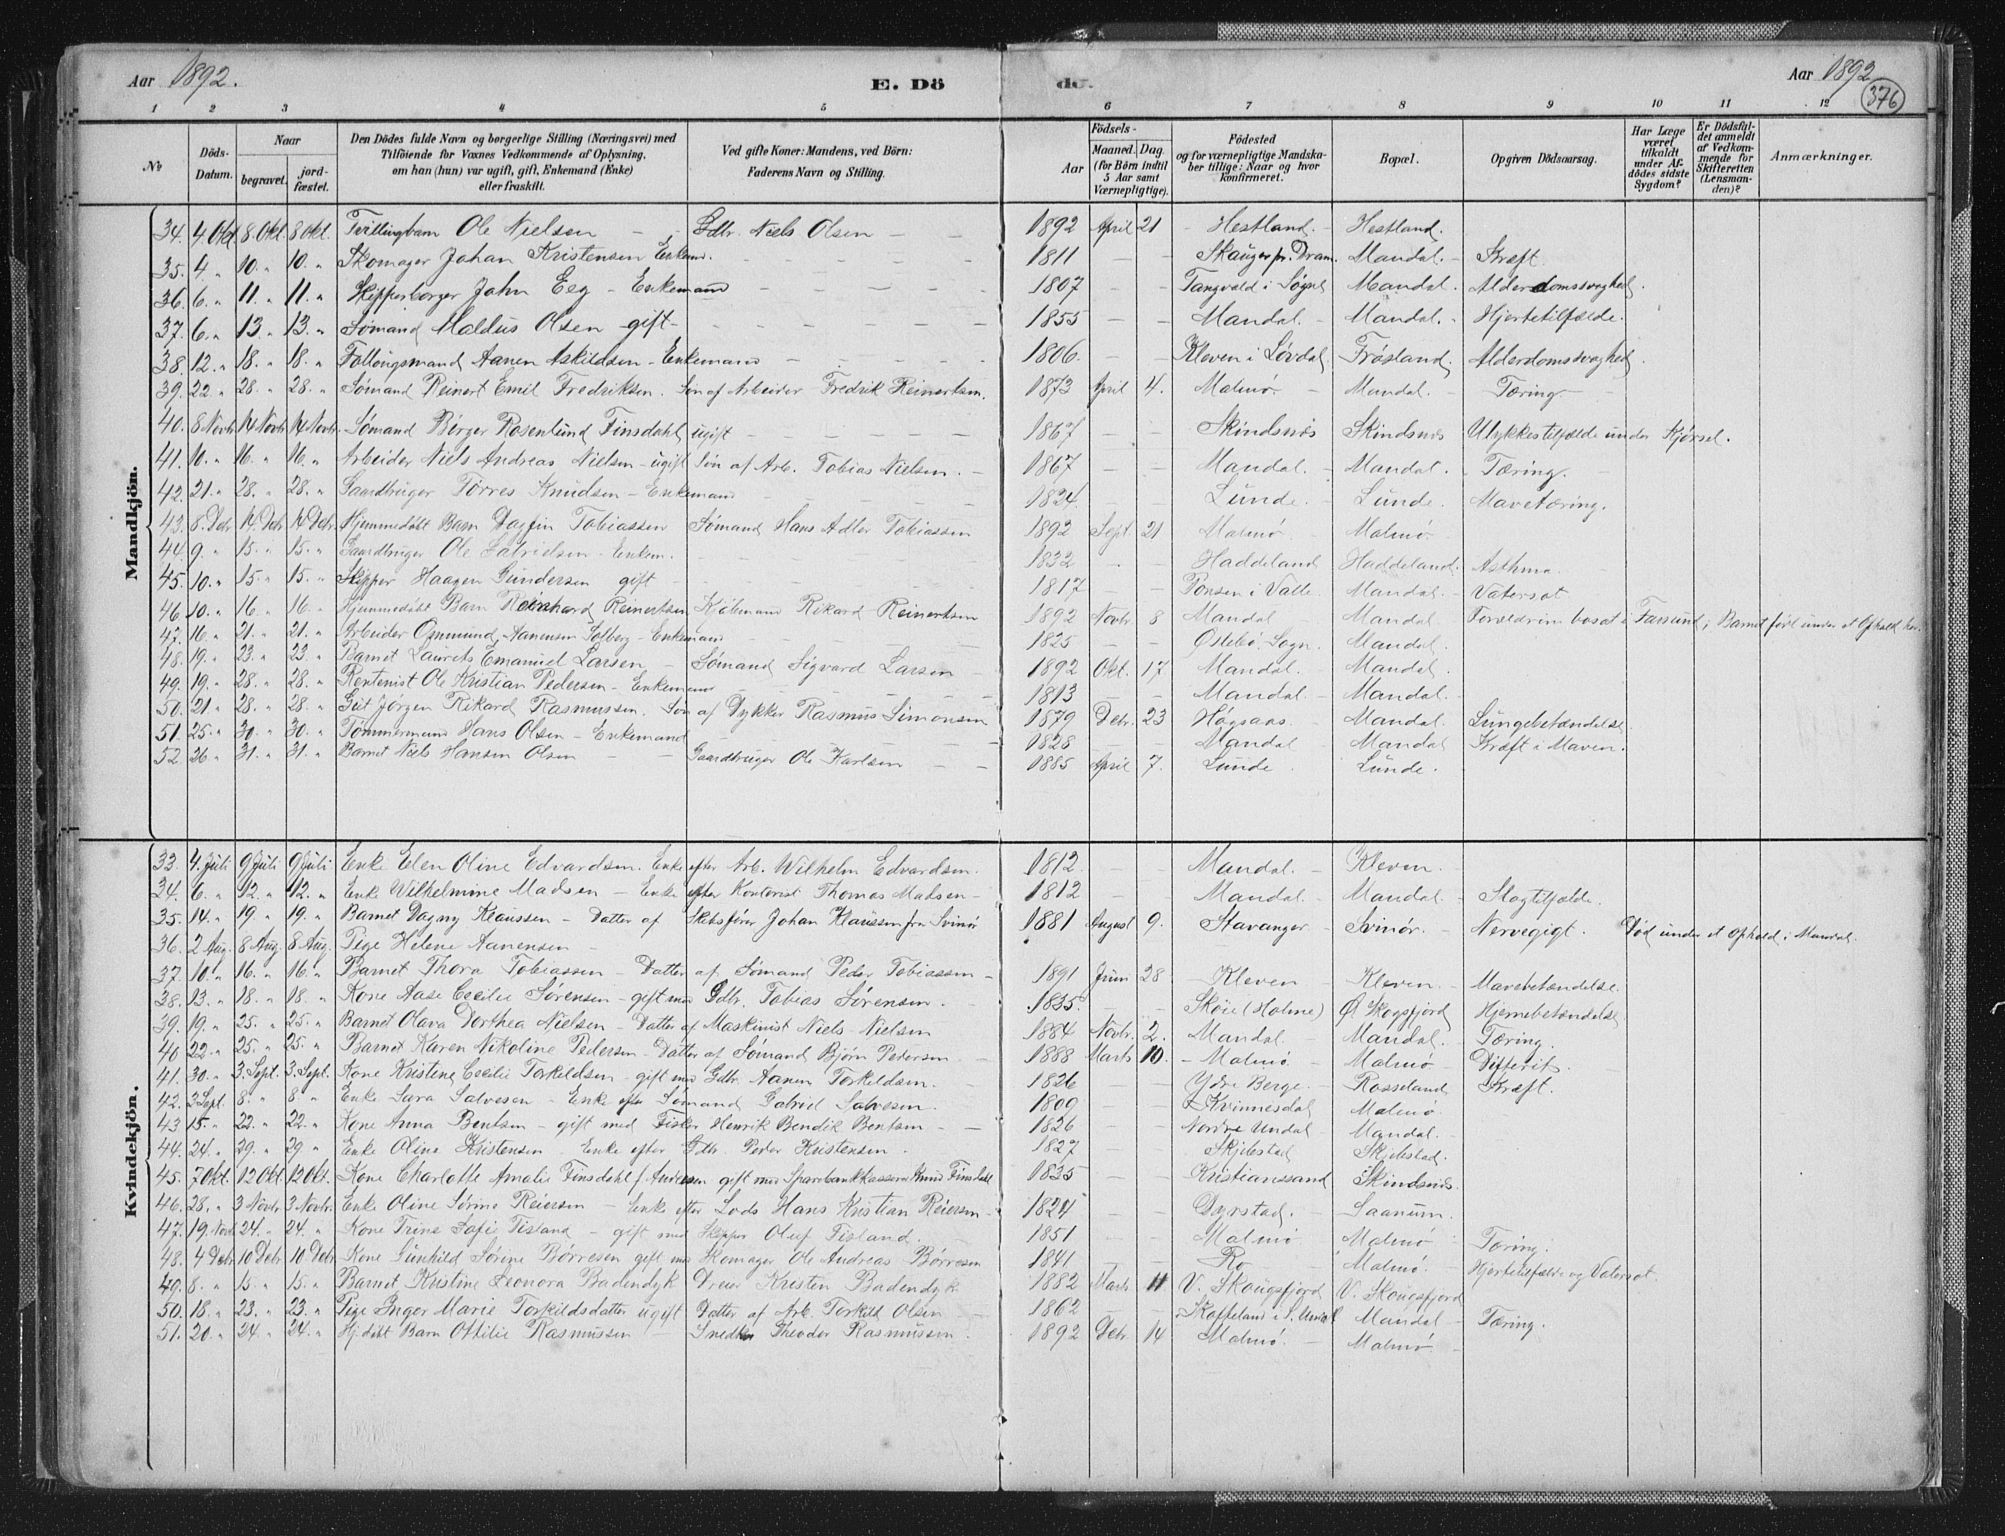 Aar 1892.
E. Dö
de.
Aar 1892
376
1 2 3 4 5 6 7 8 9 10 11 12
No
Döds-Datum.
Naar
begravet.
jord-fæstet.
Den Dödes fulde Navn og borgerlige Stilling (Næringsvei) med
Tilföiende for Voxnes Vedkommende af Oplysning,
om han (hun) var ugift, gift, Enkemand (Enke)
eller fraskilt.
Ved gifte Koner: Mandens, ved Börn:
Faderens Navn og Stilling.
Födsels-
Aar
Maaned. Dag.
(for Börn indtil
5 Aar samt
Værnepligtige).
Födested
og for værnepligtige Mandska-
ber tillige: Naar og hvor
konfirmeret.
Bopæl.
Opgiven Dödsaarsag.
Har Læge
været
tilkaldt
under Af-
dödes sidste
Sygdom?
Er Dödsfal-
det anmeldt
af Vedkom-
mende for
Skifteretten
(Lensman-
den)?
Anmærkninger.
Mandkjön.
34. 4. Okt 8. Okt. 8 Okt. Tvillingbarn Ole Nielsen - Gdbr. Niels Olsen - - 1892 April 21 - Hestland. - Hestland.
35. 4 " 10. " 10. " Skomager Johan Kristensen Enkem. - - 1811 - - Skauger pr. Dram. Mandal. - Kræft.
36. 6. " 11. " 11. " Skipperborger John Eeg - Enkemand - - 1807 - - Tangvald i Søgne Mandal. Alderdomssvaghed.
37. 6. " 13. " 13. " Sømand Maldus Olsen - gift - - - 1855 - - Mandal. - Mandal. - Hjertetilfælde.
38. 12. " 18. " 18. " Aanen Askildsen - Enkemand - - 1806. - Kleven i Løvdal, Frøsland. Alderdomssvaghed.
39. 22. " 28. " 28. " Sømand Reinert Emil Fredriksen. Søn af Arbeider Fredrik Reinertsen. 1873 April 4. - Malmø. - Mandal. - Tæring
40. 8 Novbr 14 Novbr 14 Novbr. Sømand Børger Rosenlund Finsdahl, ugift - - 1867 - - Skindsnes Skindsnes Ulykkestilfælde under Kjørsel.
41. 10. " 16. " 16. " Arbeider Niels Andreas Nielsen - ugift Søn af Arb. Tobias Nielsen. - 1867 - - Mandal. - Mandal. - Tæring.
42. 21. " 28. " 28. " Gaardbruger Torres Knudsen - Enkemand - - 1824. - - Lunde. - Lunde. - Mavetæring.
43. 8. Debr 14. Debr 14 Debr. Hjemmedøbt Barn Dagfin Tobiassen Sømand Hans Adler Tobiassen 1892 Sept. 21 - Malmø. - Malmø.
44. 9. " 15. " 15. " Gaardbruger Ole Gabrielsen - Enkem. - - 1832 - - Haddeland Haddeland. Asthma.
45. 10. " 15. " 15. " Skipper Haagen Gundersen gift - - 1817 - - Ponsen i Valle Mandal. - Vatersot
46. 10. " 16. " 16. " Hjemmedøbt Barn Reinhard Reinertsen Kjøbmand Rikard Reinertsen 1892 Novbr 8 - Mandal - Mandal. Forældrene bosat i Farsund; Barnet født under et Ophold her.
47. 16. " 21. " 21. " Arbeider Ommund Aanensen Solberg - Enkemand - - 1825 - - Østebø. Sogn. Mandal.
48. 19. " 23. " 23. " Barnet Laurits Emanuel Larsen - Sømand Sigvard Larsen - 1892 Okt. 17 - Mandal. - Mandal.
49. 19. " 28. " 28. " Rentenist Ole Kristian Pedersen - Enkemand - - 1813 - - Mandal. - Mandal.
50. 21 " 28. " 28. " Gut Jørgen Rikard Rasmussen. Søn af Dykker Rasmus Simonsen 1879 Debr. 23 - Høgsaas. - Mandal. - Lungebetændelse
51. 25. " 30. " 30. " Tømmermand Hans Olsen - Enkemand - - 1828 - - Mandal - Mandal Kræft i Maven.
52. 26 " 31. " 31. " Barnet Niels Hansen Olsen - Gaardbruger Ole Karlsen - - 1885 April 7. - Lunde. Lunde.
Kvindekjön.
33. 4. Juli 9 Juli 9 Juli Enke Elen Oline Edvardsen. Enke efter Arb. Wilhelm Edvardsen. 1812. - - Mandal. - Kleven.
34. 6. " 12. " 12. " Enke Wilhelmine Madsen - Enke efter Kontorist Thomas Madsen - 1812 - - Mandal. - Mandal. - Slagtilfælde.
35. 14. " 19. " 19. " Barnet Dagny Klaussen - Datter af Skibsfører Johan Klaussen fra Svinør 1881 August 9. - Stavanger - Svinør. - Nervegigt. Død under et Ophold i Mandal.
36. 2 Aug. 8 Aug. 8 Aug. Pige Helene Aanensen -
37. 10. " 16. " 16. " Barnet Thora Tobiassen - Datter af Sømand Peder Tobiassen - 1891 Juni 28 - Kleven - Kleven. - Mavebetændelse.
38. 13. " 18. " 18. " Kone Aase Cecilie Sørensen - gift med Gdbr. Tobias Sørensen. - 1835. - - Skøie (Holme) Ø. Skogsfjord Hjernebetændelse
39. 19. " 25. " 25. " Barnet Olava Dorthea Nielsen - Datter af Maskinist Niels Nielsen 1884 Novbr. 2. - Mandal. Mandal. - Tæring.
40 22. " 25. " 25. " Barnet Karen Nikoline Pedersen - Datter af Sømand Bjørn Pedersen - 1888 Marts 10. - Malmø - Malmø - Differit.
41. 30. " 3. Sept. 3. Sept. Kone Kristine Cecilie Torkildsen - gift med Gdbr. Aanen Torkildsen. 1826 - - Ydre Berge. - Rosseland Kræft.
42. 3 Sept. 8. " 8 " Enke Sara Salvesen - Enke efter Sømand Gabriel Salvesen. 1809 - - Kvinnesdal Malmø.
43 15. " 22. " 22. " Kone Anna Bentsen - gift med Fisker Henrik Bendik Bentsen - 1826 - - Nordre Undal - Mandal.
44. 24. " 29. " 29 " Enke Olina Kristensen Enke efter Gdbr. Peder Kristensen. 1827 - - Skjebstad Skjebstad.
45. 7 Okt. 12 Okt. 12 Okt. Kone Charlotte Amalie Finsdahl f. Andersen gift med Sparebankkasserer Knud Finsdahl 1835 - - Kristianssand Skindsnes.
46. 28. " 3 Novbr 3 Novbr. Enke Oline Sørine Reiersen - Enke efter Lods Hans Kristian Reiersen - 1824 - - Dyrstad. - Saanum.
47. 19. Novbr 24. " 24. " Kone Trine Sofie Fisland - gift med Skipper Oluf Fisland. - 1851 - - Malmø Malmø Tæring.
48. 4 Debr 10 Debr 10 Debr. Kone Gunhild Sørine Børresen gift med Skomager Ole Andreas Børresen 1841 Ro Malmø. Hjertetilfælde og Vatersot.
49. 8. " 15. " 15. " Barnet Kristine Leonora Badendyk Dreier Kristen Badendyk 1882 Marts 11 V. Skougsfjord V. Skougsfjord
50. 18. " 23. " 23. " Pige Inger Marie Torkildsdatter ugift Datter af Arb. Torkild Olsen - 1862 - - i S. Undal Mandal - Tæring.
51. 20. " 24. " 24. " Hj.døbt Barn Ottilie Rasmussen - Snedker Theodor Rasmussen. 1892 Debr 14 - Malmø. - Malmø. -